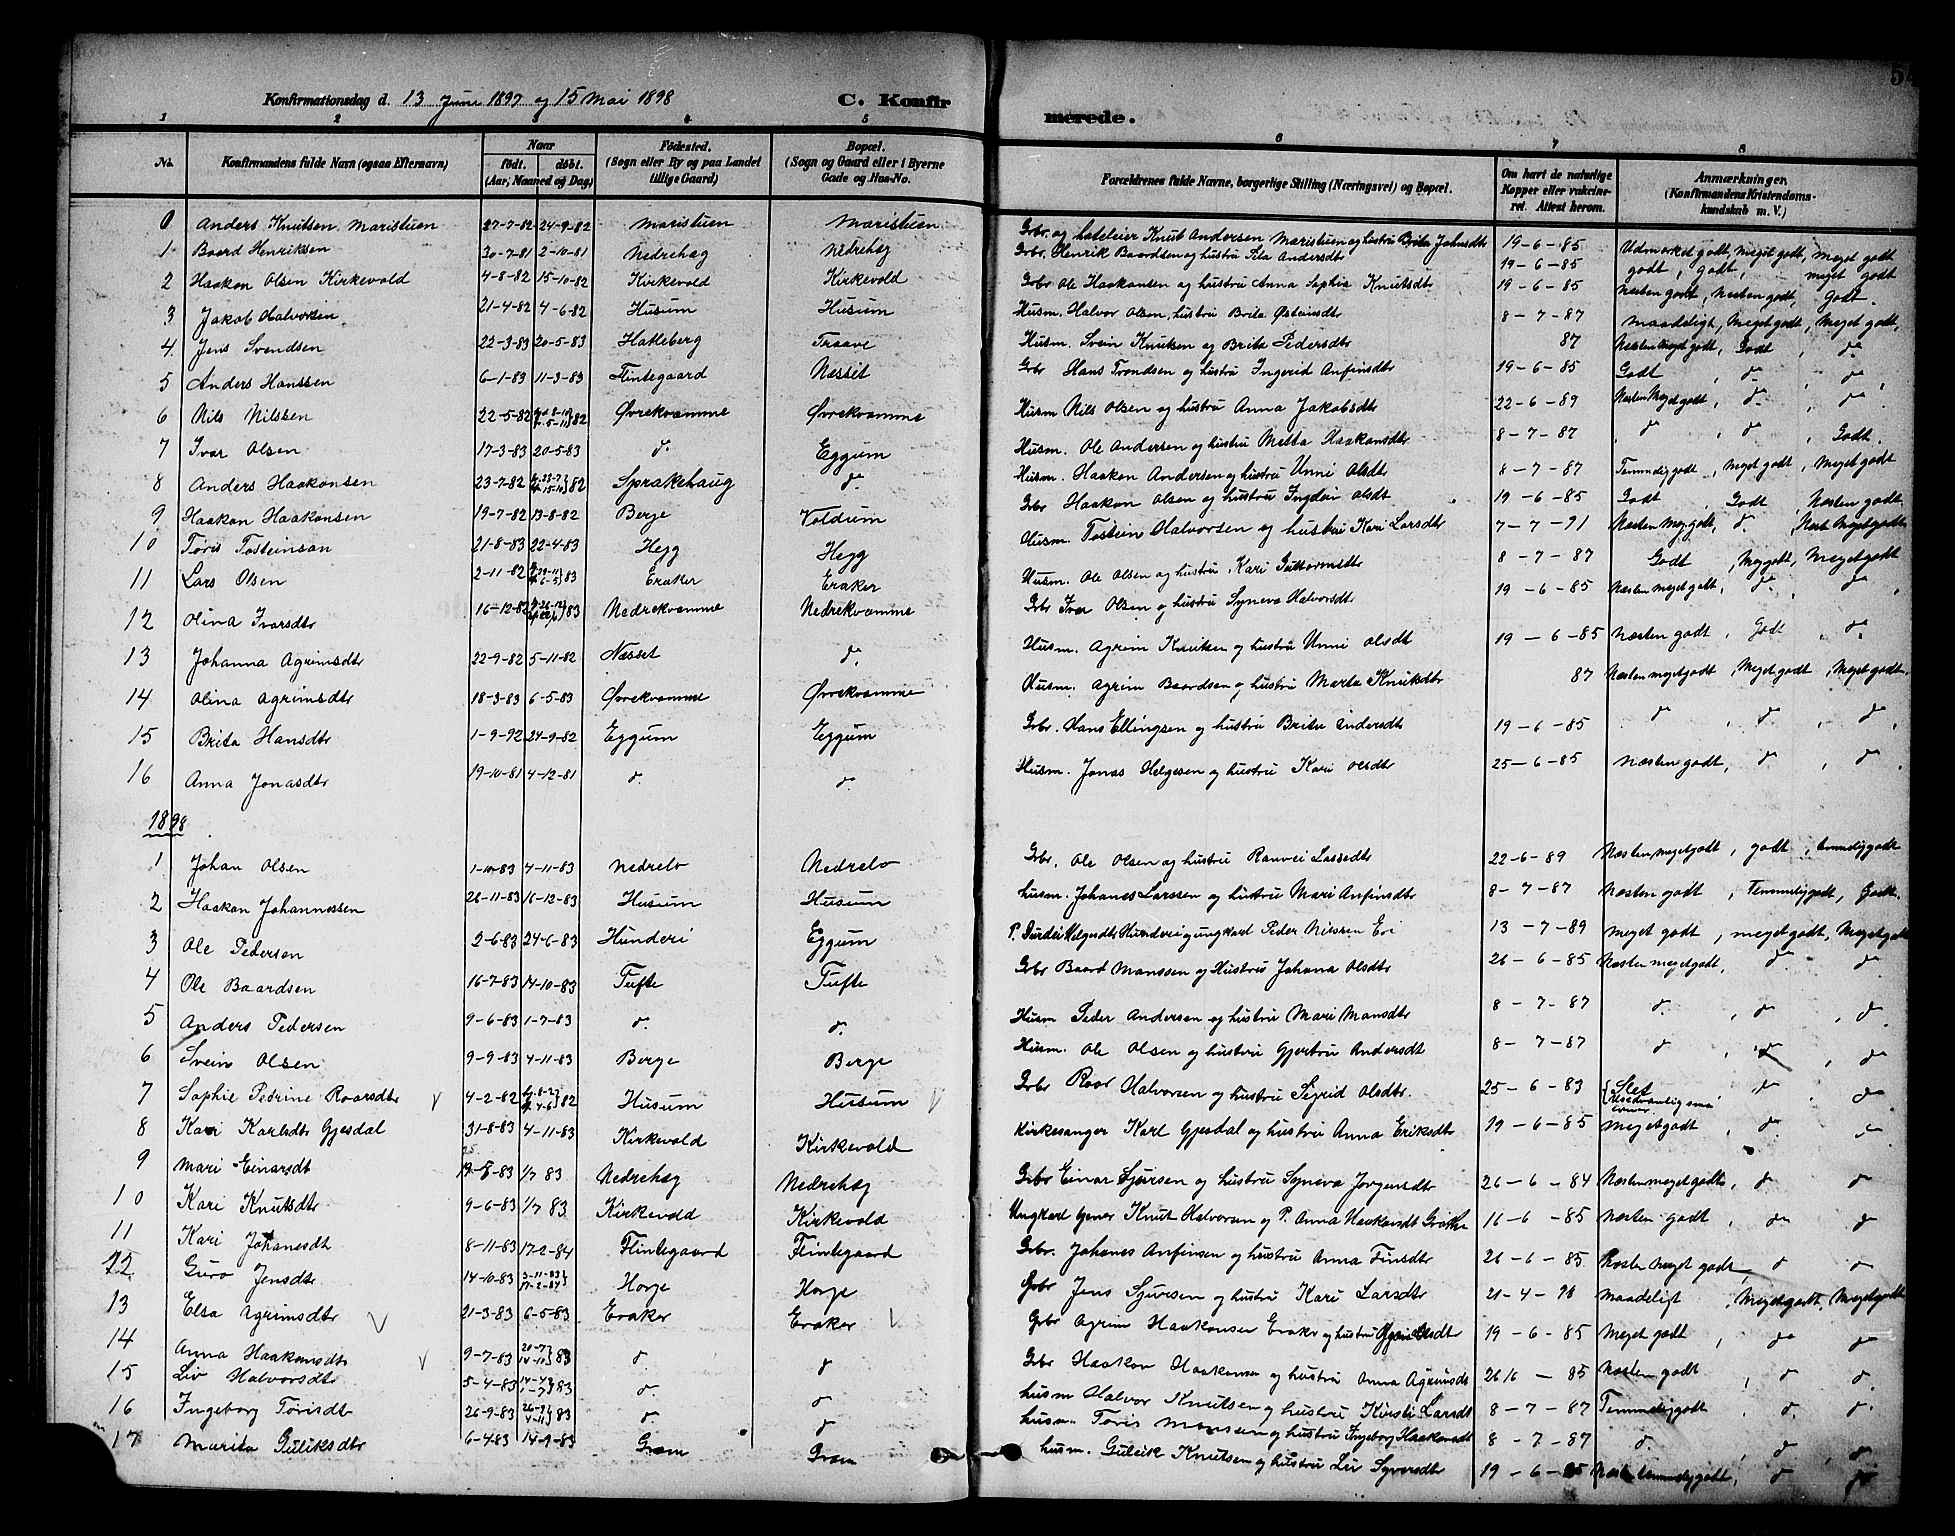 54
Konfirmationsdag d. 13 Juni 1897 og 15 Mai 1898 C. Konfirmerede.
1 2 3 4 5 6 7 8
No. Konfirmandens fulde Navn (ogsaa Efternavn) Naar født. døbt. (Aar, Maaned og Dag) Fødested. (Sogn eller By og paa Landet tillige Gaard) Bopæl. (Sogn og Gaard eller i Byerne Gade og Hus-No. Forældrenes fulde Navne, borgerlige Stilling (Næringsvei) og Bopæl. Om havt de naturlige Kopper eller vaccineret. Attest herom. Anmærkninger, (Konfirmandens Kristendomskundskab m. V.)
0 Anders Knutsen Maristuen 27-7-82 24-9-82 Maristuen Maristuen Gbr. og hoteleier Knut Andersen Maristuen og hustru Brita Johnsdtr 19-6-85 Udmerket godt, meget godt, meget godt
1 Baard Henriksen 30-7-81 2-10-81 Nedrehæg Nedrehæg Gbr. Henrik Baardsen og hustru Sila Andersdtr 19-6-85 godt, godt, meget godt
2 Haakon Olsen Kirkevold 4-8-82 15-10-82 Kirkevold Kirkevold Gbr Ole Haakonsen og hustru Anna Sophie Knutsdtr 19-6-85 Næsten godt, Næsten godt, Godt.
3 Jakob Halvorsen 21-4-82 4-6-82 Husum Husum Husm. Halvor Olsen, hustru Brita Østeinsdtr 8-7-87 maadeligt, Meget godt, Meget godt,
4 Jens Svendsen 22-3-83 20-5-83 Hatleberg Traave Husm. Svein Knutsen og Brita Pedersdtr 87 Næsten meget godt, Godt, do
5 Anders Hanssen 6-1-83 11-3-83 Flintegaard Næsset Gbr Hans Trondsen og hustru Ingerid Anfinsdtr 19-6-85 Godt, do, do,
6 Nils Nilssen 22-5-82 82 Øvrekvamme Øvrekvamme Husm Nils Olsen og hustru Anna Jakobsdtr 22-6-89 Næsten Meget godt, do, do
7 Ivar Olsen 17-3-83 20-5-83 do. Eggum Husm. Ole Andersen og hustru Metta Haakonsdtr 8-7-87 do, do, Godt.
8 Anders Haakonsen 23-7-82 82 Sprakehaug do Husm. Haakon Andersen og hustru Unni Olsdt 8-7-87 Temmelig godt, Meget godt, Meget godt
9 Haakon Haakonsen 19-7-82 13-8-82 Berge Voldum Gbr Haakon Olsen og hustru Olsdt 19-6-85 Godt, Godt, Næsten godt
10 Toris Tosteinsan 21-8-83 22-4-83 Hegg Hegg Husm. Tostein Halvorsen og hustru Kari Larsdtr 7-7-91 Næsten Meg godt, do.
11 Lars Olsen 2-11-82 83 Eraker Eraker Husm. Ole Olsen og hustru Kari Guttormsdtr 8-7-87 Godt, Meg godt, Meget godt
12 Olina Ivarsdtr 16-12-82 83 Nedrekvamme Nedrekvamme Gbr Ivar Olsen og hustru Syneva Halvorsdtr 19-6-85 Næsten meget godt, do, do,
13 Johanna Agrimsdtr 22-9-82 5-11-82 Næsset do. Husm. Agrim Knutsen og hustru Unni Olsdt 19-6-85 Næsten godt, Godt, do
14 Olina Agrimsdtr 18-3-83 6-5-83 Øvrekvamme Øvrekvamme Husm. Agrim Baardsen og hustru Marta Knutsdtr 87 Næsten meget godt, Meget godt, Meget godt.
15 Brita Hansdtr 1-9-92 24-9-82 Eggum Eggum Gbr. Hans Ellingsen og hustru Brita Andersdtr 19-6-85 do, do, do,
16 Anna Jonasdtr 19-10-81 4-12-81 do. do. Husm. Jonas Helgesen og hustru Kari Olsdtr 25-6-85 Næsten godt, do, do
1898
1 Johan Olsen 1-10-83 4-11-83 Nedrelo Nedrelo Gbr. Ole Olsen og hustru Ranvei Lassedtr 22-6-89 Næsten meget godt, godt, temmelig godt
2 Haakon Johannessen 26-11-83 16-12-83 Husum Husum husm. Johanes Larssen og hustru Mari Anfinsdtr 8-7-87 Næsten godt, Temmelig godt, Godt.
3 Ole Pedersen 2-6-83 24-6-83 Hunderi Eggum P. Durdei Helgesdtr Hunderi og ungkarl Peder Nilssen Eri 13-7-89 meget godt, meget godt, Meget godt
4 Ole Baardsen 16-7-83 14-10-83 Tufte Tufte Gbr Baard Manssen og Hustru Johana Olsdtr 26-6-85 Næsten meget godt, do do
5 Anders Pedersen 9-6-83 1-7-83 do. do. Husm Peder Andersen og hustru Mari Mansdtr 8-7-87 do, do, do
6 Svein Olsen 9-9-83 4-11-83 Berge Berge Husm. Ole Olsen og hustru Gjertru Andersdt 8-7-87 do, do, do
7 Sophie Pedrine Roarsdtr V 4-2-82 82 Husum Husum V Gbr Roar Halvorsen og hustru Sigrid Olsdtr. 25-6-83 Slet do do
8 Kari Karlsdtr Gjesdal 31-8-83 4-11-83 Kirkevold Kirkevold Kirkesanger Karl Gjesdal og hustru Anna Eriksdtr 19-6-85 Meget godt, do do
9 Mari Einarsdt 83 1/7 83 Nedrehæg Nedrehæg Gbr Einar Sjursen og hustru Syneva Jørgensdtr 26-6-84 Næsten meget godt, do do
10 Kari Knutsdtr 9-6-83 1/7 83 Kirkevold Kirkevold Ungkarl Knut Halvorsen og P. Anna Haakonsdt 16-6-85 Næsten godt, do do
11 Kari Johanesdt 8-11-83 17-2-84 Flintegaard Flintegaard Gbr. Johanes Anfinsen og hustru Anna Finsdtr 26-6-85 Næsten meget godt, do do
12 Guro Jensdtr 14-10-83 3-11-83 17-2-84 Horje Horje Gbr Jens Sjursen og hustru Kari Larsdtr 21-4-90 maadeligt, Meget godt, Meget godt
13 Elsa Agrimsdtr V 21-3-83 6-5-83 Eraker Eraker V Gbr Agrim Haakonsen Eraker og hustru 19-6-85 Meget godt, do do
14 Anna Haakonsdtr V 9-7-83 20-7 14-10 83 do. do Gbr Haakon Haakonsen og hustru Anna Agrimsdt 26 16-85 Næsten godt, do do.
15 Liv Halvorsdtr 5-4-83 83 do. do husm Halvor Knutsen og hustru Kirsti Larsdt 8-7-87 Temmelig godt, do. do
16 Ingeborg Torisdtr 26-9-83 4-11 83 do. do husm. Toris Monssen og hustru Ingeborg Haakonsdt 8-7-87 do. do, do
17 Marita Guliksdtr 6-4-83 14-9-83 Grøm Grøm husm. Guleik Knutsen og hustru Liv Syversdtr 19-6-85 temmelig godt, do do